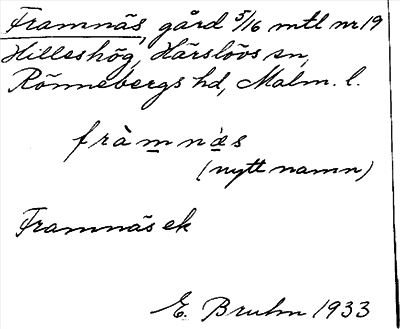 Framnäs, gård 5/16 mtl nr 19
Hilleshög, Härslövs sn,
Rönnebergs hd, Malm. l.
fràmnæ̀s
(nytt namn)
Framnäs ek
E. Bruhn 1933